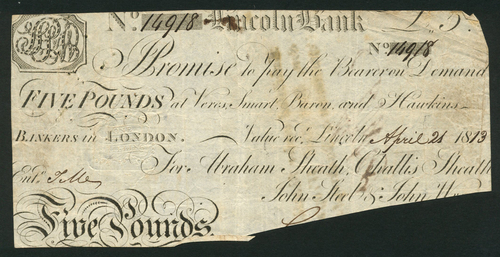 No. 14918 Lincoln Bank £5.
No. 14918
I Promise to pay the Bearer on Demand
FIVE POUNDS at Veres, Smart, Baron, and Hawkins
BANKERS in LONDON. Value recd. Lincoln April 21 1813
For Abraham Sheath, Challis Sheath
John Steel & John
Entd.
Five Pounds.